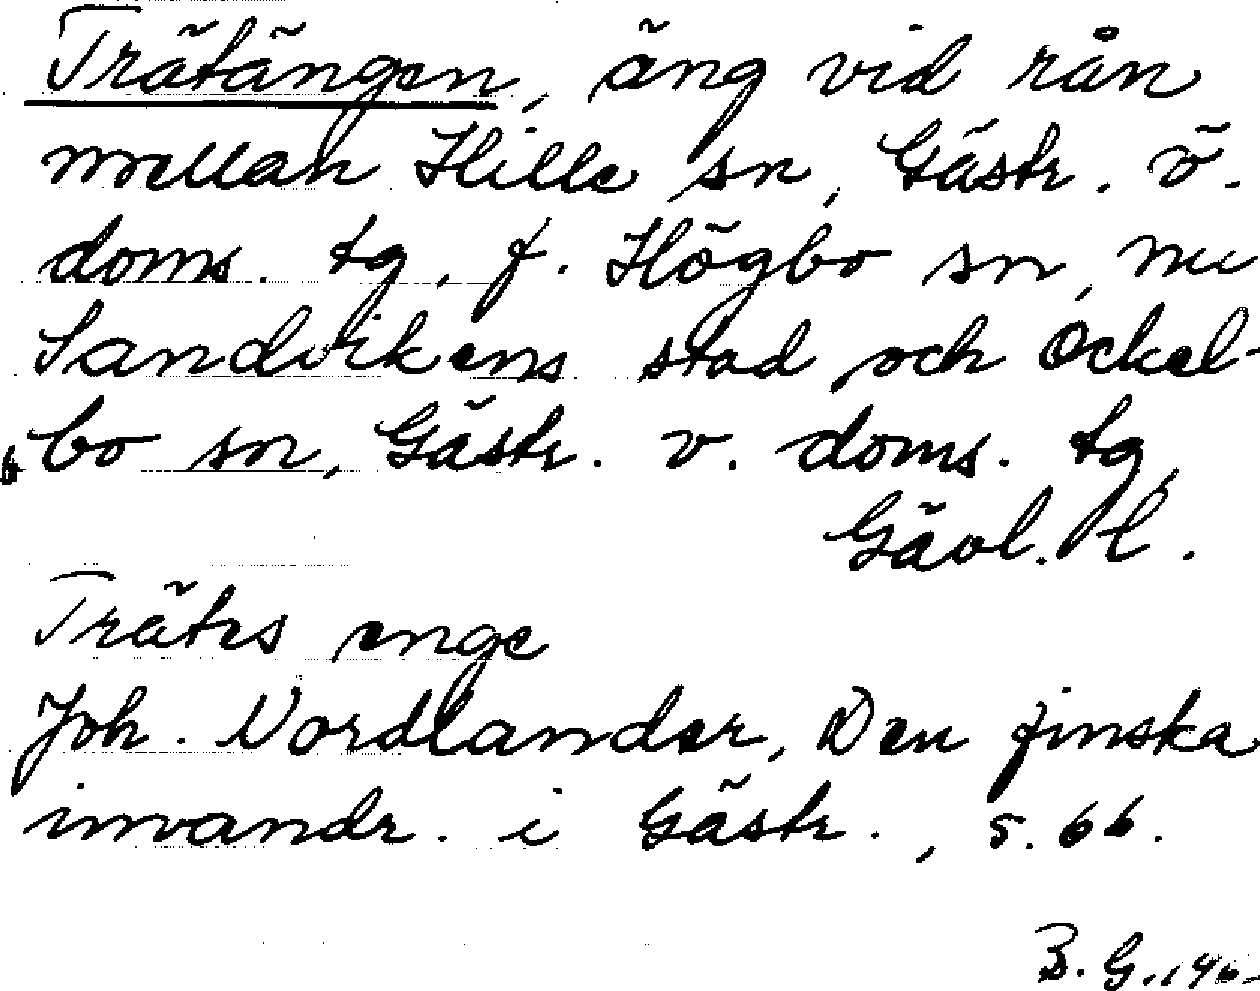 Trätängen, äng vid rån
mellan Hille sn, Gästr. ö.
doms. tg, f. Högbo sn, nu
Sandvikens stad och Ockel-
bo sn, Gästr. v. doms. tg,
Gävl. l.
Trätes enge
Joh. Nordlander, Den finska
invandr. i Gästr., s. 66.
B. G.